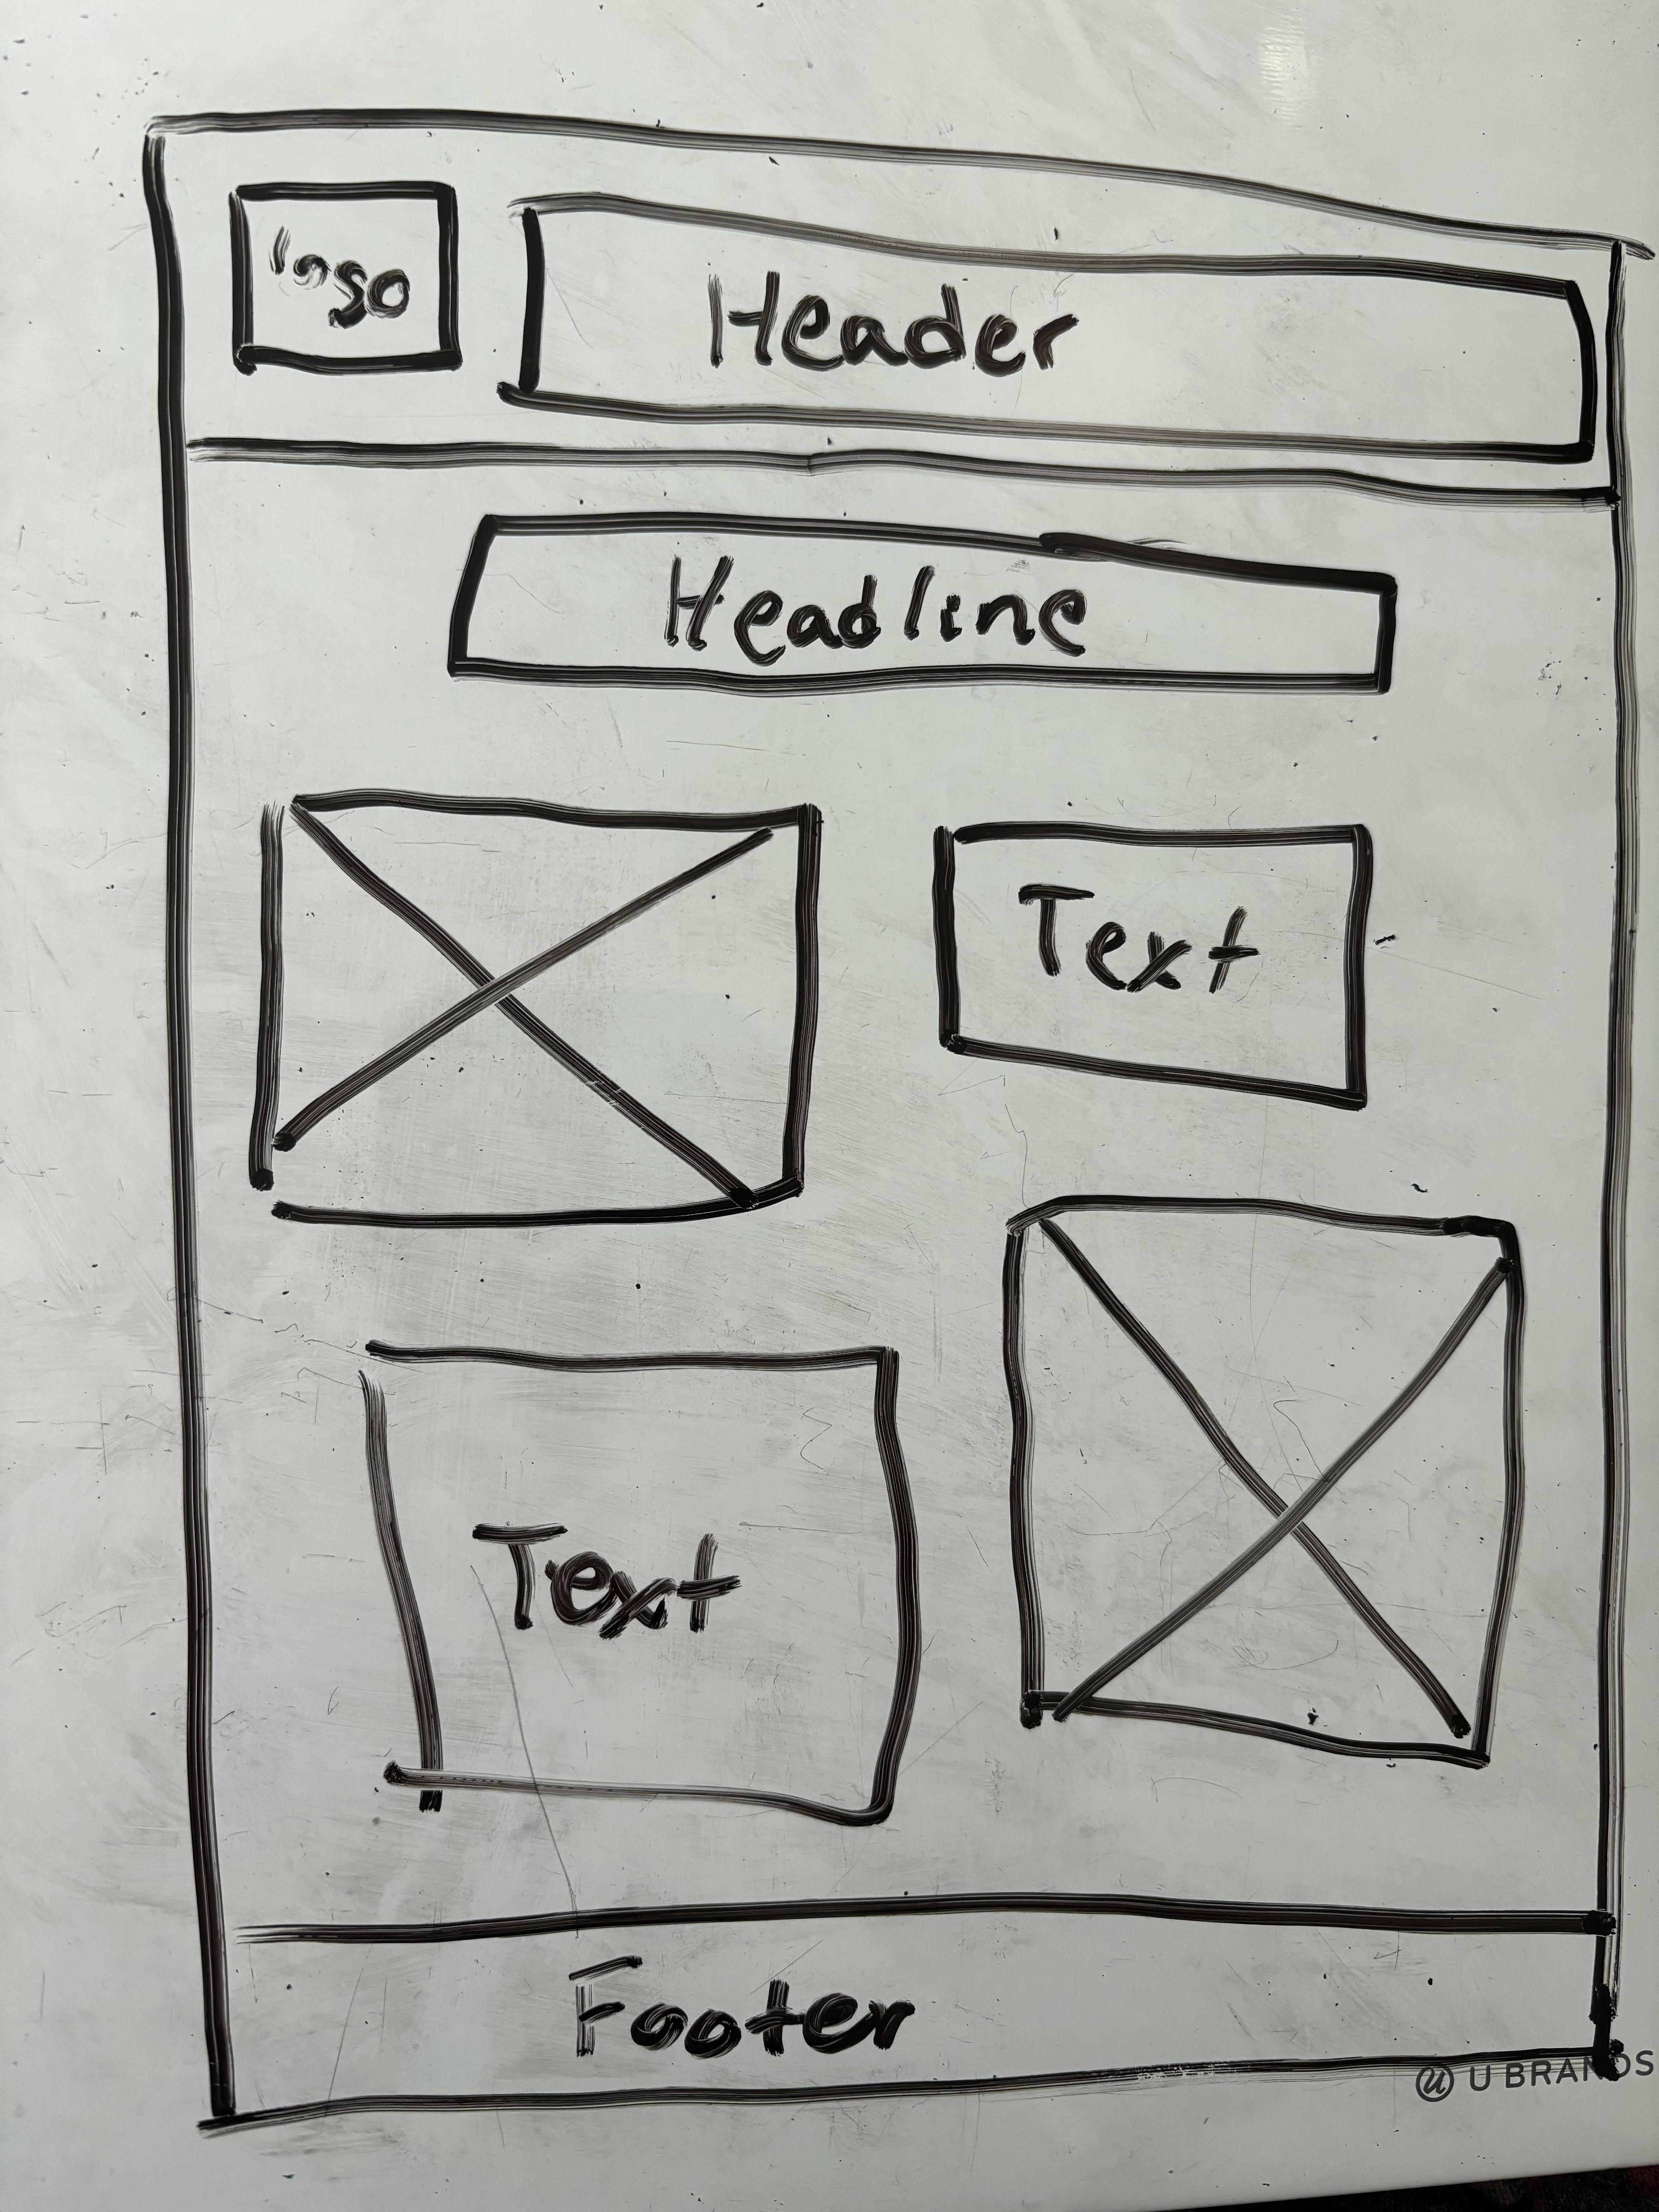 logo
Header
Headline
Text
Text
Footer
U BRANDS